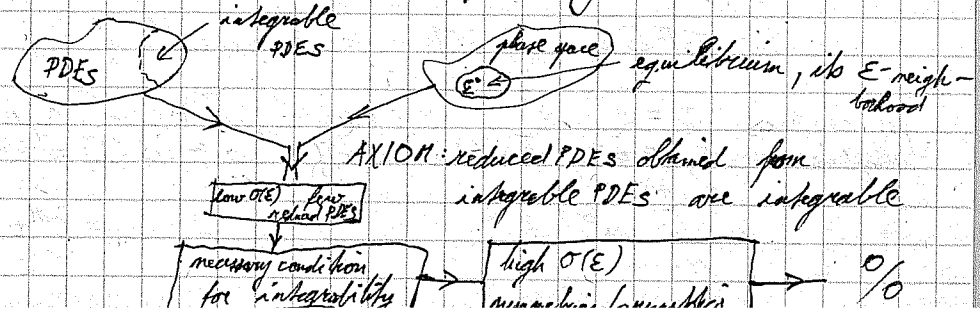 integrable
PDEs
PDEs
phase space
ε
equilibrium, its ε-neigh-
borhood
AXIOM: reduced PDEs obtained from
integrable PDEs are integrable
low σ(ε) few
reduced PDEs
necessary condition
for integrability
high σ(ε)
%